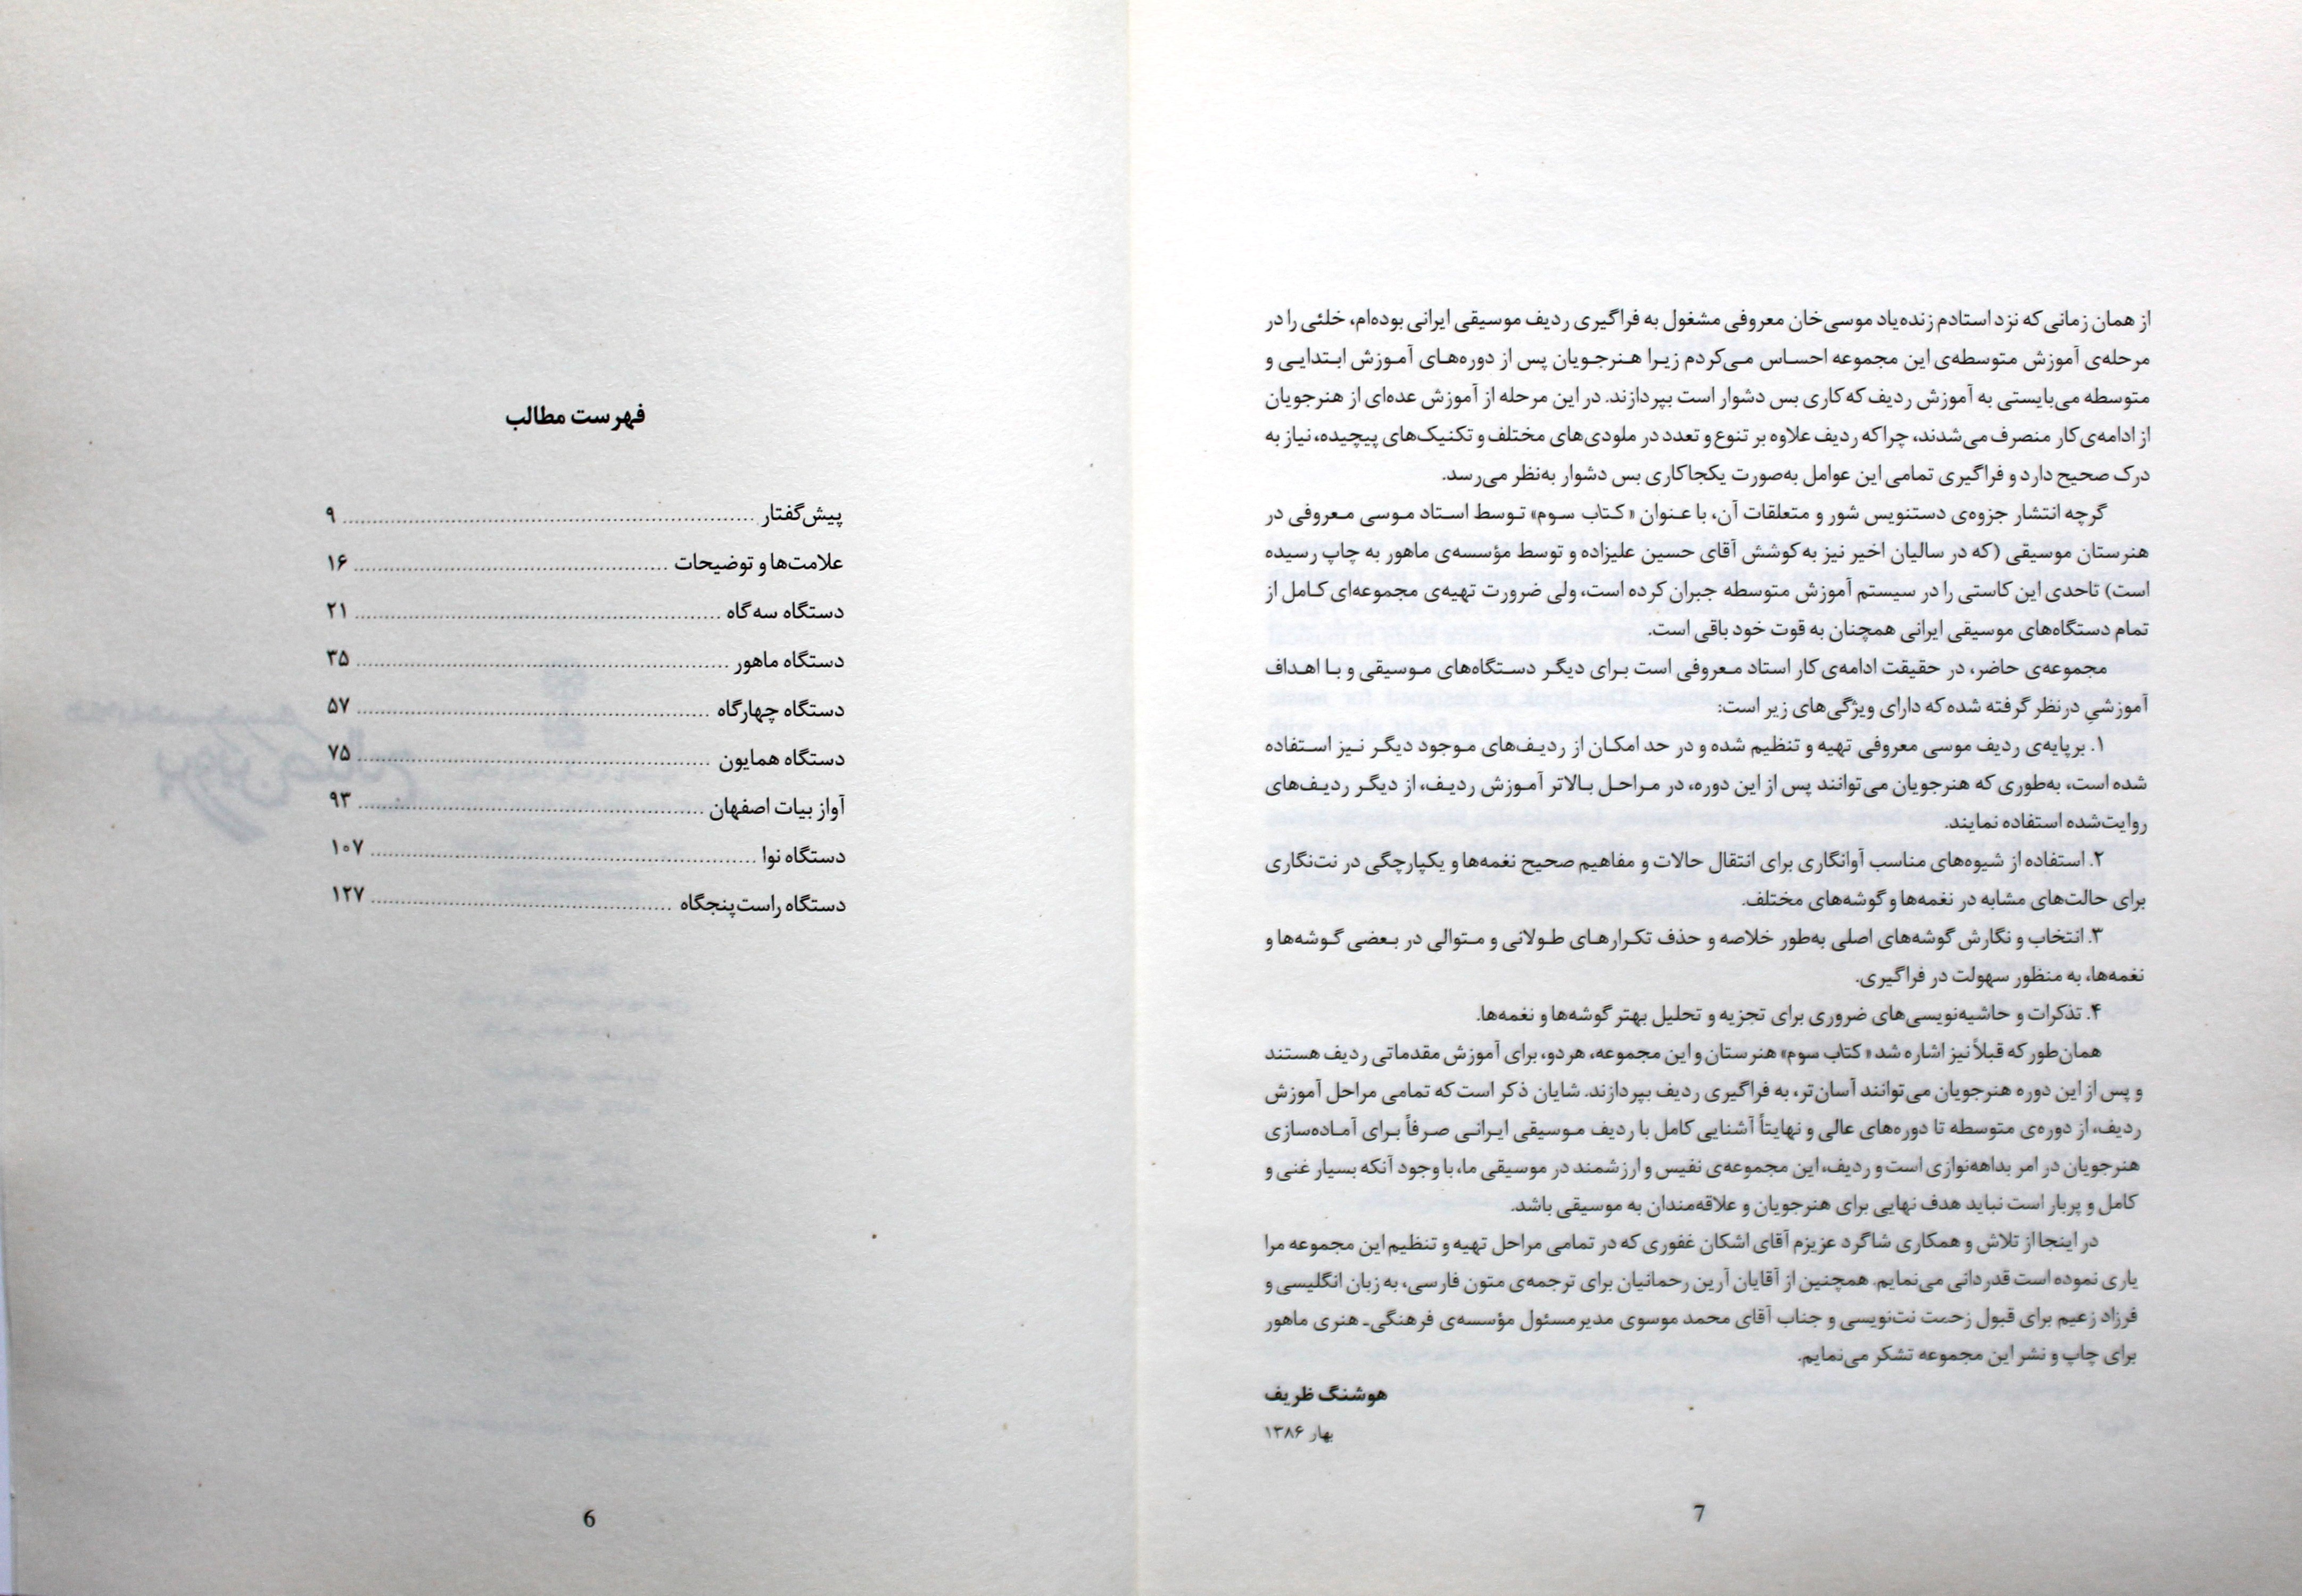 فهرست مطالب
پیش‌گفتار ........ ۹
علامت‌ها و توضیحات ........ ۱۶
دستگاه سه‌گاه ........ ۲۱
دستگاه ماهور ........ ۳۵
دستگاه چهارگاه ........ ۵۷
دستگاه همایون ........ ۷۵
آواز بیات اصفهان ........ ۹۳
دستگاه نوا ........ ۱۰۷
دستگاه راست‌پنجگاه ........ ۱۲۷
6
از همان زمانی که نزد استادم زنده‌یاد موسی‌خان معروفی مشغول به فراگیری ردیف موسیقی ایرانی بوده‌ام، خلئی را در
مرحله‌ی آموزش متوسطه‌ی این مجموعه احساس می‌کردم زیرا هنرجویان پس از دوره‌های آموزش ابتدایی و
متوسطه می‌بایستی به آموزش ردیف که کاری بس دشوار است بپردازند. در این مرحله از آموزش عده‌ای از هنرجویان
از ادامه‌ی کار منصرف می‌شدند، چراکه ردیف علاوه بر تنوع و تعدد در ملودی‌های مختلف و تکنیک‌های پیچیده، نیاز به
درک صحیح دارد و فراگیری تمامی این عوامل به‌صورت یکجاکاری بس دشوار به‌نظر می‌رسد.
گرچه انتشار جزوه‌ی دستنویس شور و متعلقات آن، با عنوان «کتاب سوم» توسط استاد موسی معروفی در
هنرستان موسیقی (که در سالیان اخیر نیز به کوشش آقای حسین علیزاده و توسط مؤسسه‌ی ماهور به چاپ رسیده
است) تاحدی این کاستی را در سیستم آموزش متوسطه جبران کرده است، ولی ضرورت تهیه‌ی مجموعه‌ای کامل از
تمام دستگاه‌های موسیقی ایرانی همچنان به قوت خود باقی است.
مجموعه‌ی حاضر، در حقیقت ادامه‌ی کار استاد معروفی است برای دیگر دستگاه‌های موسیقی و با اهداف
آموزشیِ درنظر گرفته شده که دارای ویژگی‌های زیر است:
۱. برپایه‌ی ردیف موسی معروفی تهیه و تنظیم شده و در حد امکان از ردیف‌های موجود دیگر نیز استفاده
شده است، به‌طوری که هنرجویان می‌توانند پس از این دوره، در مراحل بالاتر آموزش ردیف، از دیگر ردیف‌های
روایت‌شده استفاده نمایند.
۲. استفاده از شیوه‌های مناسب آوانگاری برای انتقال حالات و مفاهیم صحیح نغمه‌ها و یکپارچگی در نت‌نگاری
برای حالت‌های مشابه در نغمه‌ها و گوشه‌های مختلف.
۳. انتخاب و نگارش گوشه‌های اصلی به‌طور خلاصه و حذف تکرارهای طولانی و متوالی در بعضی گوشه‌ها و
نغمه‌ها، به منظور سهولت در فراگیری.
۴. تذکرات و حاشیه‌نویسی‌های ضروری برای تجزیه و تحلیل بهتر گوشه‌ها و نغمه‌ها.
همان‌طور که قبلاً نیز اشاره شد «کتاب سوم» هنرستان و این مجموعه، هر دو، برای آموزش مقدماتی ردیف هستند
و پس از این دوره هنرجویان می‌توانند آسان‌تر، به فراگیری ردیف بپردازند. شایان ذکر است که تمامی مراحل آموزش
ردیف، از دوره‌ی متوسطه تا دوره‌های عالی و نهایتاً آشنایی کامل با ردیف موسیقی ایرانی صرفاً برای آماده‌سازی
هنرجویان در امر بداهه‌نوازی است و ردیف، این مجموعه‌ی نفیس و ارزشمند در موسیقی ما، با وجود آنکه بسیار غنی و
کامل و پربار است نباید هدف نهایی برای هنرجویان و علاقه‌مندان به موسیقی باشد.
در اینجا از تلاش و همکاری شاگرد عزیزم آقای اشکان غفوری که در تمامی مراحل تهیه و تنظیم این مجموعه مرا
یاری نموده است قدردانی می‌نمایم. همچنین از آقایان آرین رحمانیان برای ترجمه‌ی متون فارسی، به زبان انگلیسی و
فرزاد زعیم برای قبول زحمت نت‌نویسی و جناب آقای محمد موسوی مدیرمسئول مؤسسه‌ی فرهنگی‌ـ هنری ماهور
برای چاپ و نشر این مجموعه تشکر می‌نمایم.
هوشنگ ظریف
بهار ۱۳۸۶
7